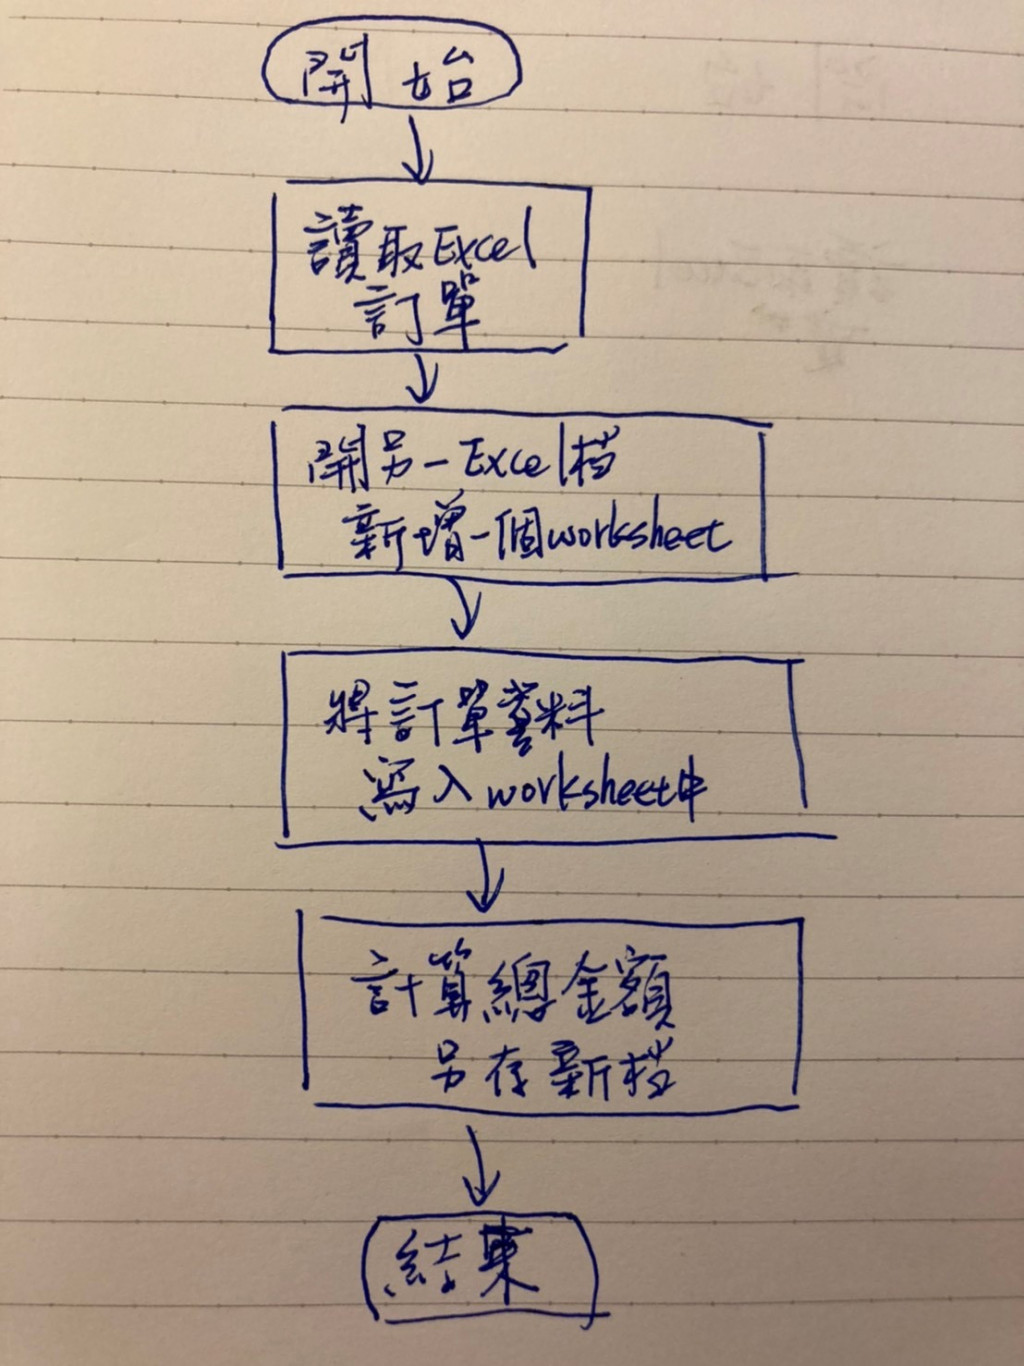 開始
讀取Excel
訂單
開另一Excel档
新增一個worksheet
將訂單資料
寫入worksheet中
計算總金額
另存新档
結束